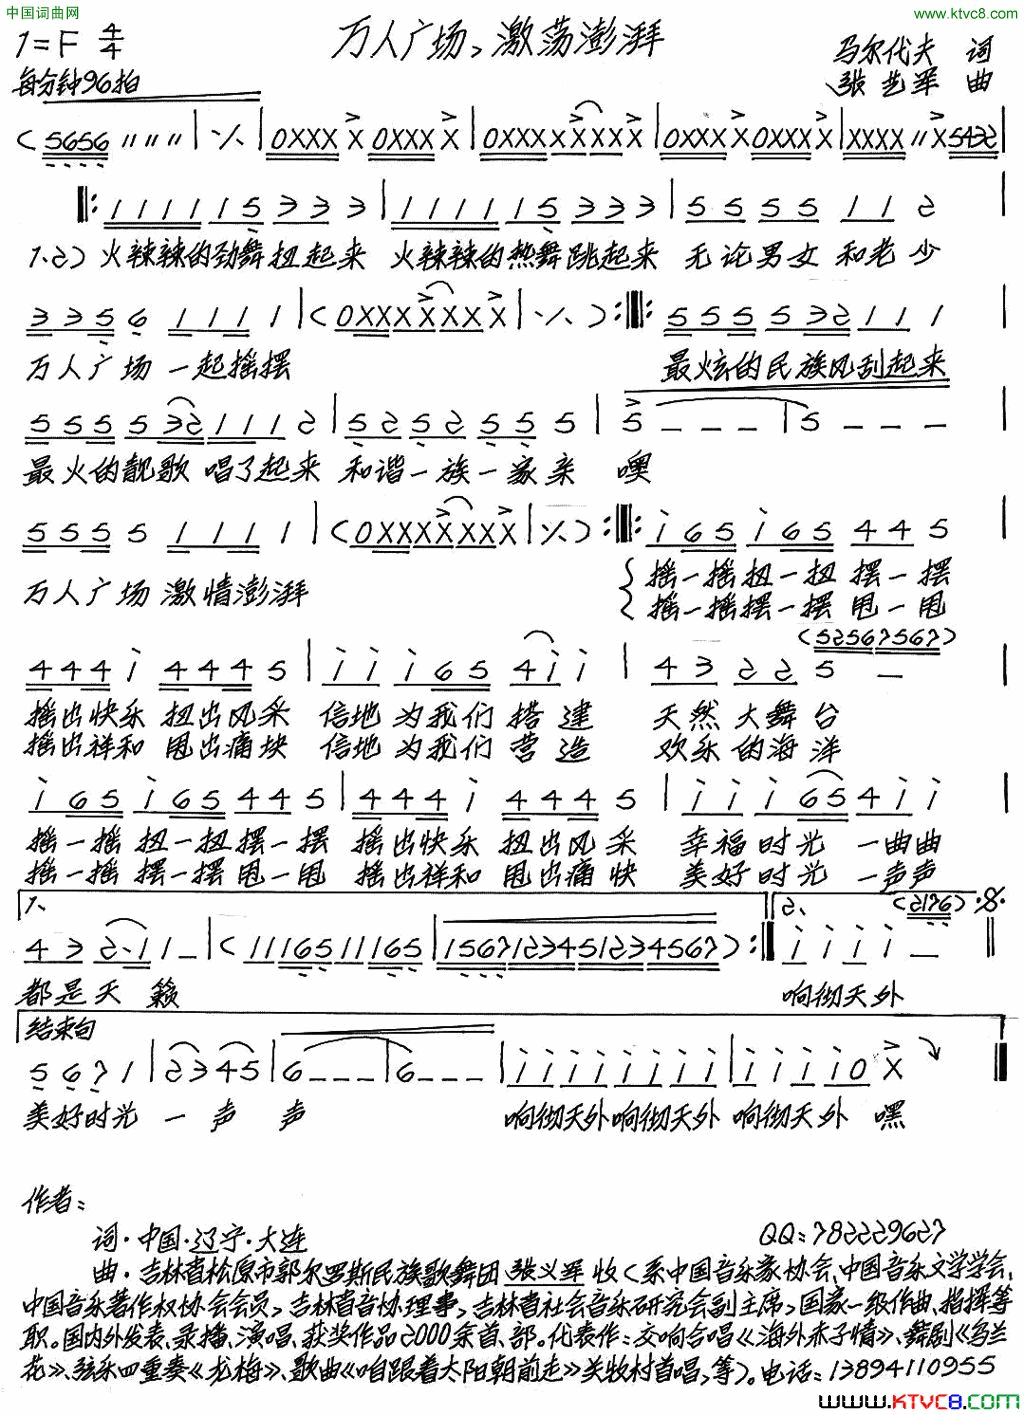 中国词曲网 www.ktvc8.com
万人广场,激荡澎湃
1=F 4/4
马尔代夫 词
每分钟96拍
张艺军 曲
(5656 〃〃〃 | ·/. | 0XXX X 0XXX X | 0XXXXXXX X | 0XXX X 0XXX X | XXXX 〃 X 5432 |
‖: 1111 15 333 3 | 1111 15 333 3 | 55 55 11 2 |
1.2) 火辣辣的劲舞扭起来 火辣辣的热舞跳起来 无论男女和老少
335 6 111 1 | (0XXXXXXX X | ·/. ) :‖: 555 532 11 1 |
万人广场 一起摇摆 最炫的民族风刮起来
555 532 111 2 | 5252 555 5 | 5 - - - | 5 - - - |
最火的靓歌 唱了起来 和谐一族一家亲 噢
555 5 111 1 | (0XXXXXXX X | ·/. ) :‖: i65 i65 44 5 |
万人广场 激情澎湃 摇一摇扭一扭 摆一摆
摇一摇摆一摆 甩一甩
(52567567)
444 i 444 5 | i i i65 4i i | 43 22 5 - |
摇出快乐 扭出风采 信地 为我们 搭建 天然大舞台
摇出祥和 甩出痛块 信地 为我们 营造 欢乐的海洋
i65 i65 44 5 | 444 i 444 5 | i i i65 4i i |
摇一摇 扭一扭摆一摆 摇出快乐 扭出风采 幸福时光 一曲曲
摇一摇 摆一摆甩一甩 摇出祥和 甩出痛快 美好时光 一声声
1. 2. (2176) 𝄋
43 2·1 1 - | (1116511165 | 1567123451234567) :‖ i i i i - ‖
都是天籁 响彻天外
结束句
5 6 7 1 | 2345 | 6 - - - | 6 - - - | iiiiiiii | iiii0 X ‖
美好时光 一声 声 响彻天外响彻天外 响彻天外 嘿
作者:
词·中国·辽宁·大连 QQ:782229627
曲·吉林省松原市郭尔罗斯民族歌舞团 张义军 收(系中国音乐家协会、中国音乐文学学会,
中国音乐著作权协会会员,吉林省音协理事,吉林省社会音乐研究会副主席,国家一级作曲、指挥等
职。国内外发表、录播、演唱、获奖作品2000余首、部。代表作:交响合唱《海外赤子情》、舞剧《乌兰
花》、弦乐四重奏《龙梅》、歌曲《咱跟着太阳朝前走》关牧村首唱,等)。电话:13894110955
www.KTVC8.com